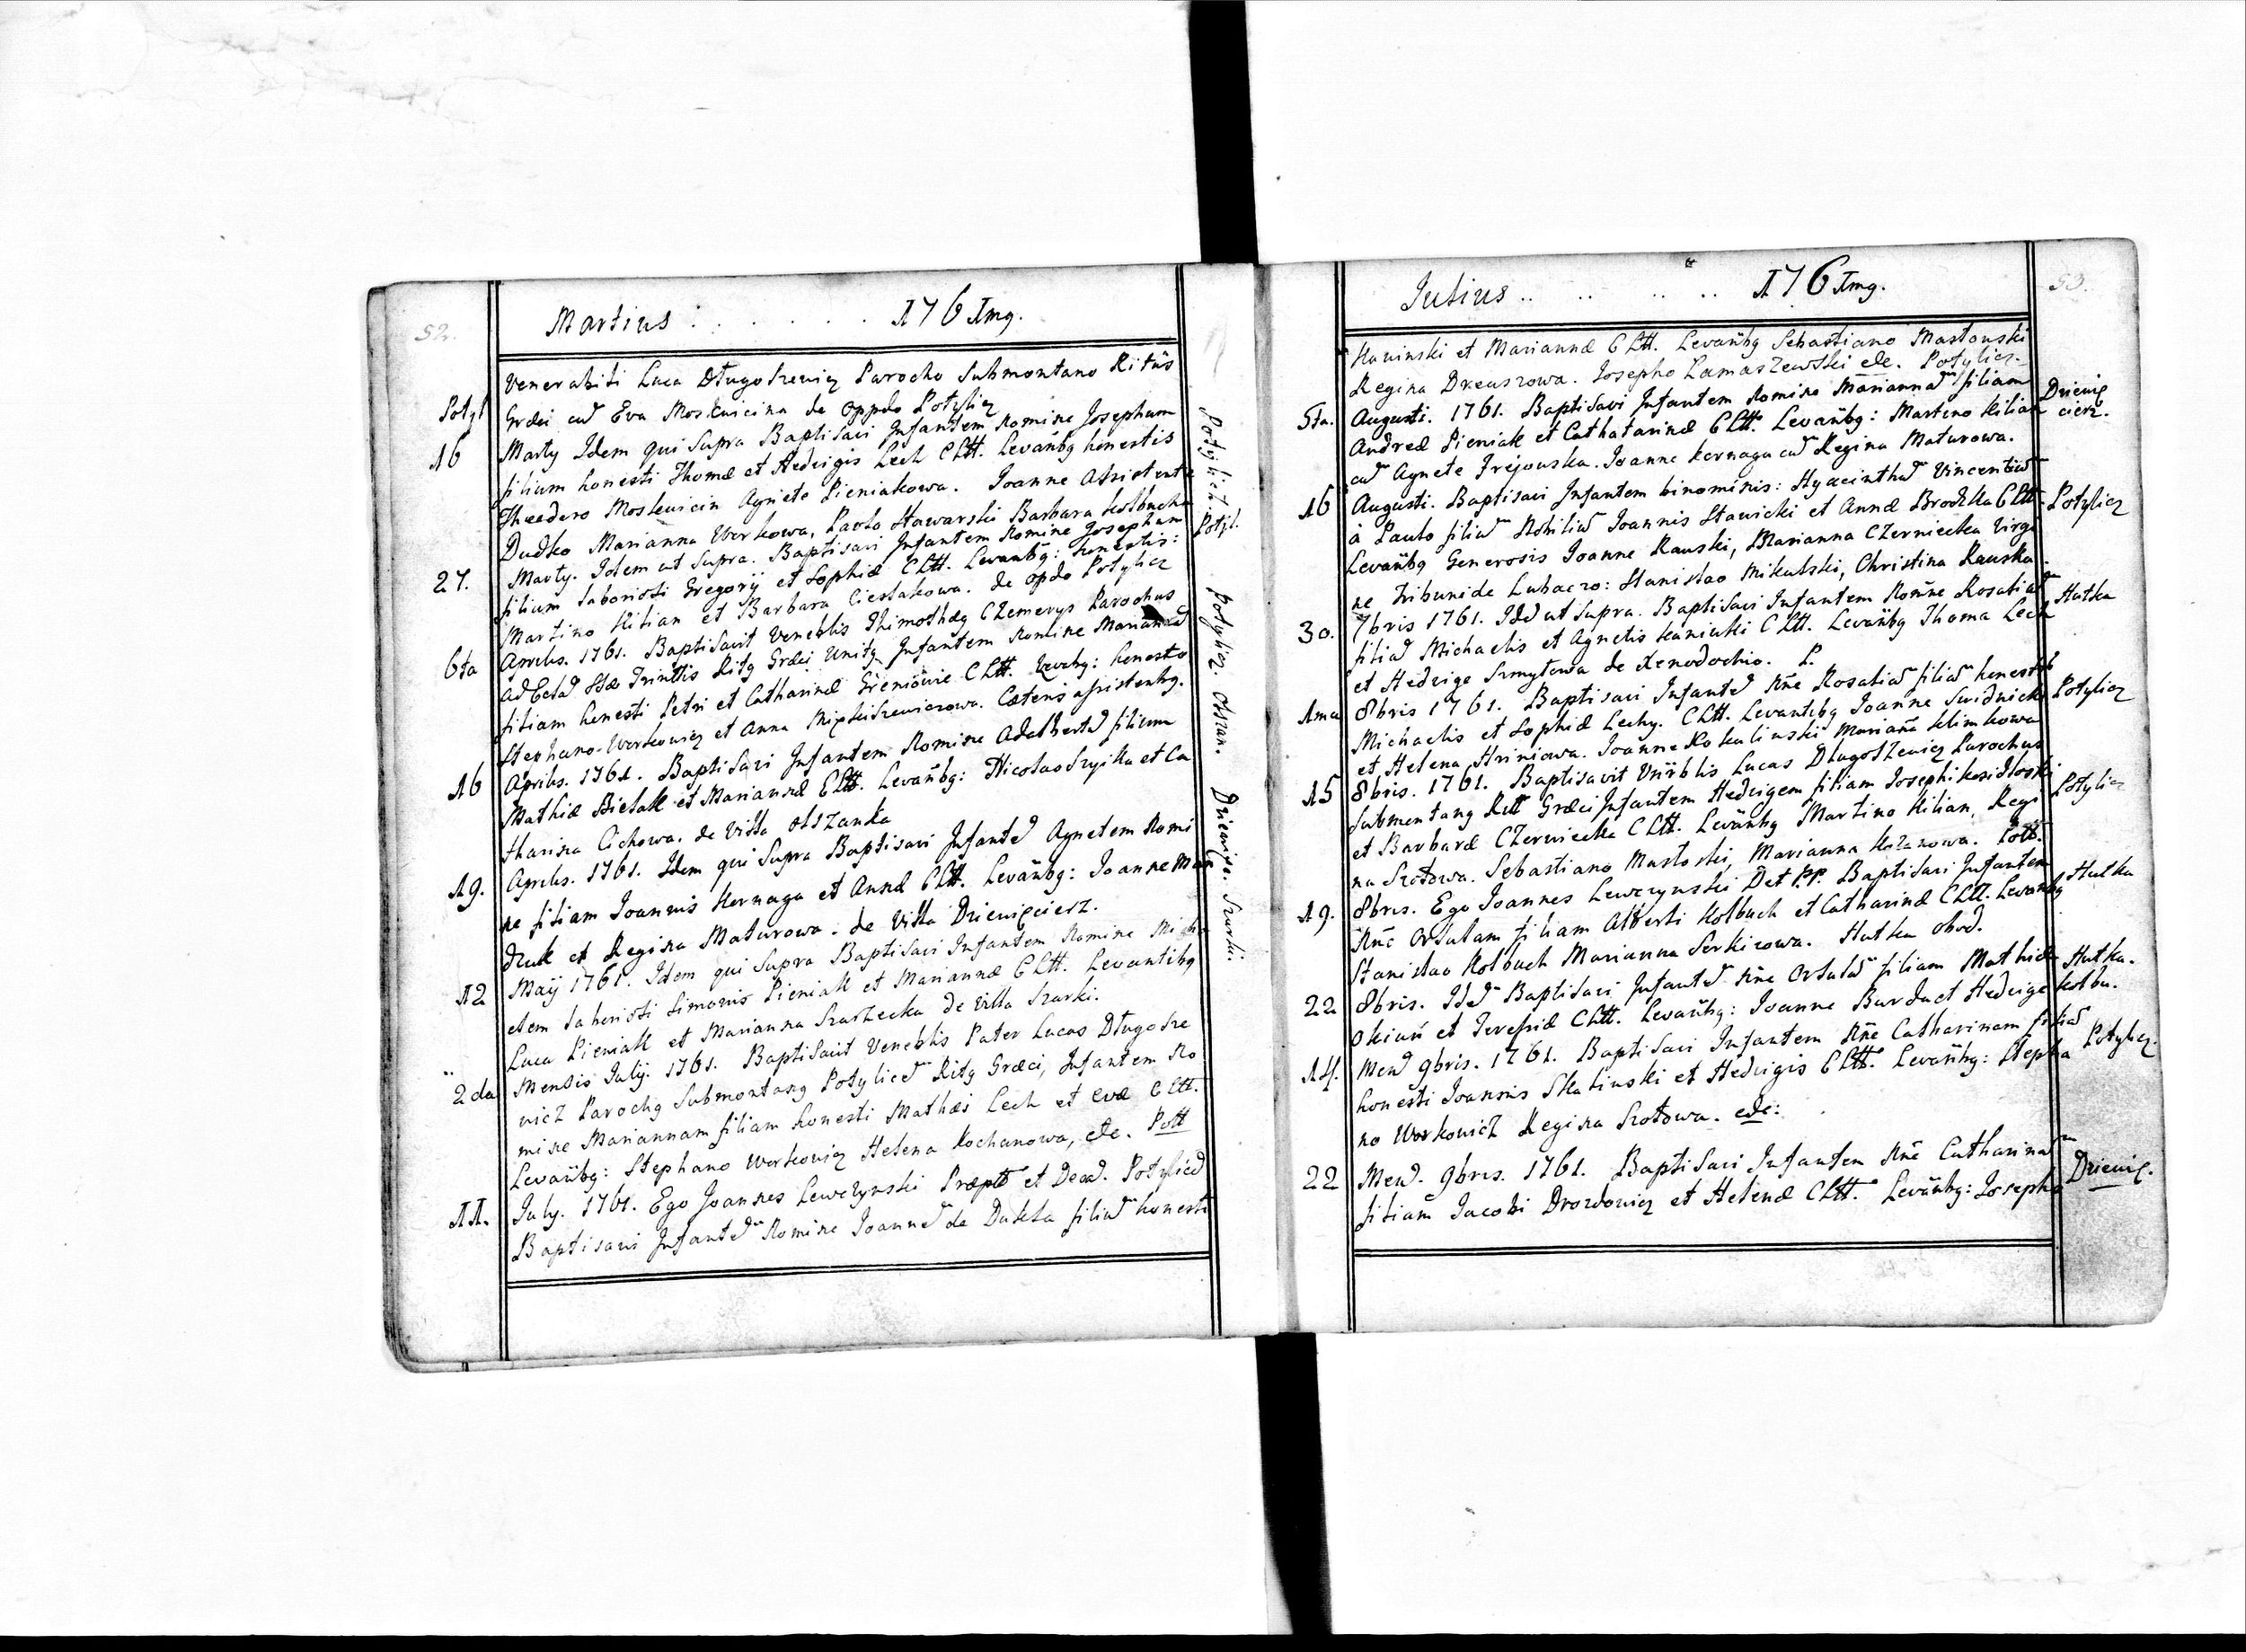 52.
Martius . . . . . . . 176 Img.
Venerabili Luca Długoszewicz Parocho Submontano Ritûs
Potyl Græci cud Eva Moskwicina de Oppdo Potylicz
16 Marty Idem qui Supra Baptisavi Infantem Nomine Josephum
filium honesti Thomæ et Hedvigis Lech CLtt. Levanbg honestis
Theodero Moskwicin Agnete Pieniakowa. Joanne Assistente
Dudko Marianna Werkowa, Paolo Stawarski Barbara Kolbucha
Potylicz.
Potyl.
27. Marty. Idem ut Supra. Baptisavi Infantem Nomine Josephum
filium laboriosi Gregorij et Sophiæ CLtt. Levanbg: honestis:
Martino Kilian et Barbara Cieslakowa. de opdo Potylicz
6ta Aprilis. 1761. Baptisavit Veneblis Thimothæg Czemerys Parochus
ad Ecład Stæ Trinttis Ritg Græci Unitg Infantem Nomine Mariannad
filiam honesti Petri et Catharinæ CLtt. Levabg: honesto
Stephano-Werkowicz et Anna Caeteris assistentbg.
Potylicz.
16 Aprilis. 1761. Baptisavi Infantem Nomine Adalbertd filium
Mathiæ Bielak et Mariannæ CLtt. Levanbg: Nicolao Szyika et Ca
tharina Cichowa. de Villa Olszanka
Olszan.
19. Aprilis. 1761. Idem qui Supra Baptisavi Infantd Agnetem Nomi
ne filiam Joannis Kernaga et Annæ CLtt. Levanbg: Joanne Man
dzuk et Regina Maturowa. de Villa Dzienięcierz.
Dzienięc.
12 Maij 1761. Idem qui Supra Baptisavi Infantem Nomine Mich
elem laboriosi Simonis Pieniak et Mariannæ CLtt. Levantibg
Luca Pieniak et Marianna Szaszecka de Villa Szarki.
Szarki.
2da Mensis Julij. 1761. Baptisavit Veneblis Pater Lucas Długosze
wicz Parochg Submontang Potylicd Ritg Græci, Infantem No
mine Mariannam filiam honesti Mathæi Lech et Evæ CLtt.
Levanbg: Stephano Werkowicz Helena Kochanowa, etc. Pott
11. July. 1761. Ego Joannes Lewczynski Præptt et Decad. Potylicd
Baptisavi Infantd Nomine Joannd de Dukla filiud honesti
53.
Julius .. .. .. .. 176 Img.
et Mariannæ CLtt. Levanbg Sebastiano Mastowski
Regina Drewszowa. Josepho Łamaszewski etc. Potylicz.
5ta. Augusti. 1761. Baptisavi Infantem Nomine Mariannad filiam Dzienię
Andreæ Pieniak et Cathatarinæ CLtt. Levanbg: Martino Kilian cierz.
cud Agnete Frejowska. Joanne Kernaga cud Regina Maturowa.
16 Augusti. Baptisavi Infantem binominis: Hyacinthud Vincentiud Potylicz
à Paulo filiud Nobiliud Joannis Stawicki et Annæ Brodzka CLtt
Levanbg Generosis Joanne Rauski, Marianna Czerniecka Virgi
ne Tribunide Lubaczo: Stanislao Mikulski, Christina Rauska.
30. 7bris 1761. Idd ut Supra. Baptisavi Infantem Nomne Rosaliad Hutka
filiad Michaelis et Agnetis CLtt. Levanbg Thoma Lech
et Hedvige Szmytowa de Xenodochio. P.
1ma 8bris 1761. Baptisavi Infantd Nne Rosaliad filiad honesti Potylicz
Michaelis et Sophiæ Lechy. CLtt. Levantibg Joanne Swidnicki
et Helena Hriniowa. Joanne Kokulinski Mariana Klimkowa
15 8bris. 1761. Baptisavit Vnrblis Lucas Długoszewicz Parochus
Submontang Ritt Græci Infantem Hedvigem filiam Josephi Potylicz
et Barbaræ Czerniecka CLtt. Levanbg Martino Kilian, Regi
na Szotowa. Sebastiano Mastoski, Marianna Kozanowa. Pott.
19. 8bris. Ego Joannes Lewczynski Det P.P. Baptisavi Infantem Hutka
Nne Orsulam filiam Alberti Kolbuch et Catharinæ CLtt. Levanbg
Stanislao Kolbuch Marianna Serkizowa. Hutka obod.
22 8bris. Idd Baptisavi Infantd Nne Orsulad filiam Mathiæ Hutka.
Okian et Terefiæ CLtt. Levanbg: Joanne Burduct Hedvige Kolbu.
14. Mend 9bris. 1761. Baptisavi Infantem Nne Catharinam filiad Potylicz.
honesti Joannis Skalinski et Hedvigis CLtt. Levanbg: Stepha
no Werkowicz Regina Szotowa. etc:
22 Mend. 9bris. 1761. Baptisavi Infantem Nne Catharinad Dzienię.
filiam Jacobi Drozdowicz et Helenæ CLtt. Levanbg: Josepho